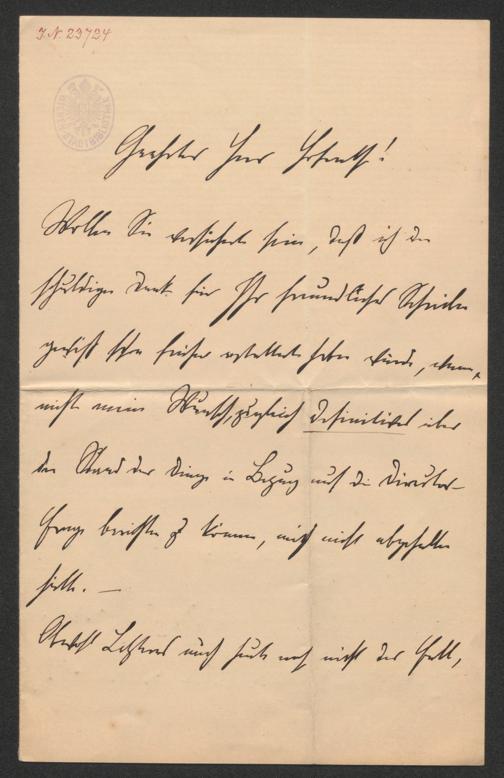 J.N. 23724
Geehrter Herr Hofrath!
Wollen Sie versichert sein, daß ich den
schuldigen Dank für Ihr freundliches Schreiben
gewiß schon früher erstattet haben würde, wenn
nicht mein Wunsch, zugleich definitives über
den Stand der Dinge in Bezug auf die Director-
frage berichten zu können, mich nicht abgehalten
hätte. —
Obwohl Letzteres auch heute noch nicht der Fall,